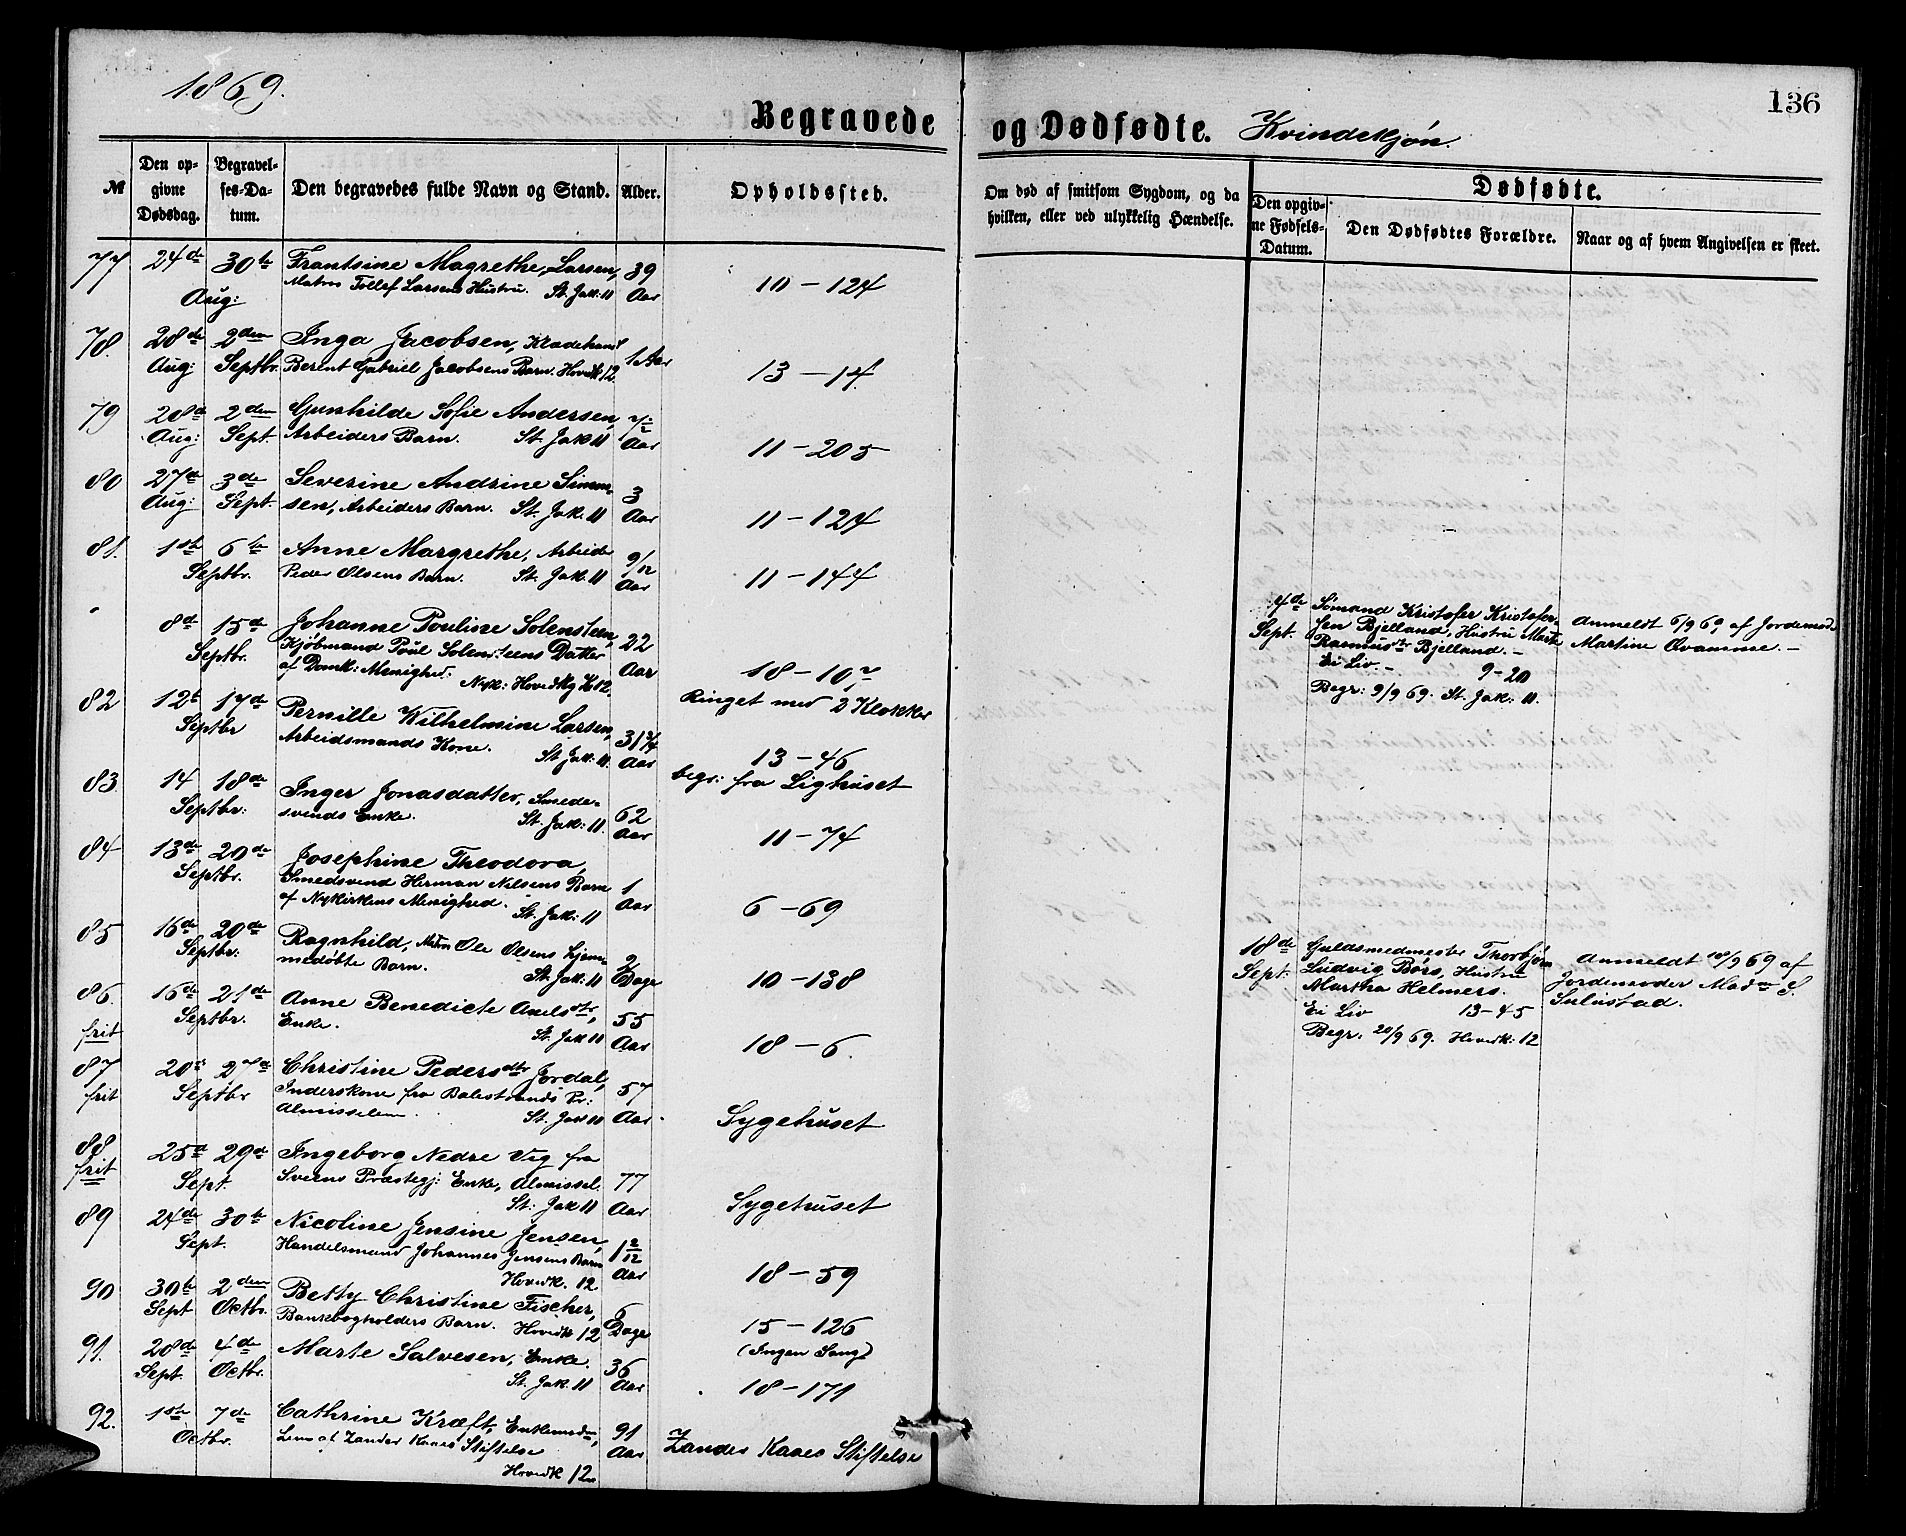 1869.
136
Begravede og Dødfødte. Kvindekjøn.
№
Den opgivne Dødsdag.
Begravelses-Datum.
Den begravedes fulde Navn og Stand.
Alder.
Opholdssted.
Om død af smitsom Sygdom, og da hvilken, eller ved ulykkelig Hændelse.
Dødfødte.
Den opgivne Fødsels-Datum.
Den Dødfødtes Forældre.
Naar og af hvem Angivelsen er skeet.
77 24de 30te Frantsine Magrethe Larsen, 39
Aug: Matros Tollef Larsens Hustru. St. Jak: 11 Aar 10-124
78. 28de 2den Inga Jacobsen, Kladehandl
Aug: Septbr. Berent Gabriel Jacobsens Barn. Hovedk 12. 1 Aar 13-14
79 28d 2den Gunhilde Sofie Andersen, 7/2
Aug: Sept. Arbeiders Barn. St. Jak 11 Aar 11-205
80 27de 3de Severine Andrine Simon- 3
Aug: Sept. sen, Arbeiders Barn. St. Jak. 11 Aar 11-124
81. 1ste 6te Anne Margrethe, Arbeider 9/12
Septbr. Peder Olsens Barn. St. Jak. 11 Aar 11-144
8d 15de Johanne Pouline Solensteen, 22
Septbr. Kjøbmand Poul Solensteens Datter
af Domk: Menighed. Aar 18-10,
Nyk: Hovedkg 12.
Ringet med 2 Klokker
82 12te 17de Pernille Wilhelmine Larsen, 31 3/4
Septbr Arbeidsmands Kone. St. Jak. 11. Aar 13-46
begr: fra Lighuset
83 14 18de Inger Jonasdatter, Smede- 62
Septbr: svends Enke. St. Jak: 11. Aar 11-74
84 13de 20de Josephine Theodora, 1
Septbr. Smedsvend Herman Nilsens Barn
af Nykirkens Menighed. St. Jak: 11 Aar 6-69
85 16de 20de Ragnhild, Matros Ole Olsens hjem- 2
Septbr: medøbte Barn. St. Jak: 11 Dage 10-138
86. 16de 21de Anne Benedicte Axelsdtr, 55
frit Septbr. Enke. St. Jak 11 Aar 18-6.
87 20de 27de Christine Pedersdtr Jordal, 57
frit Septbr Inderskone fra Balestrands Pr:
Almisselem. St. Jak 11 Aar. Sygehuset
88 25de 29de Ingeborg Nedre Vig fra
frit Sept. Sveens Præstegj: Enke, Almissel. 77
St: Jak 11 Aar Sygehuset
89 24de 30te Nicoline Jensine Jensen, 1 2/12
Sept. Handelsmand Johannes Jensens Barn
Hovedk. 12 Aar 18-59
90 30te 2den Betty Christine Fischer, 6
Sept Octbr. Bankbogholders Barn. Hovedk 12 Dage 15-126
(Ingen Sang)
91. 28de 4de Marte Salvesen, Enke. 36
Sept. Octbr. St. Jak. 11 Aar 18-171
92. 1ste 7de Cathrine Kræft, Enkemad-, 91
Octbr. Lem af Zander Kaaes Stiftelse Aar Zander Kaaes Stiftelse
Hovedk 12
4de Sømand Kristofer Kristofer-
Sept. sen Bjelland, Hustru Marte
Rasmusdtr Bjelland.-
Ei Liv.- 9-20
Begr: 9/9 69. St. Jak: 11.
Anmeldt 6/9 69 af Jordemoder
Martine Qvamme.-
18de Guldsmedmester Thorbjørn
Sept. Ludvig Børs, Hustru
Martha Helmers.
Ei Liv 13-45
Begr. 20/9 69. Hovedk: 12
Anmeldt 18/9 69 af
Jordemoder Mad S.
Sulustad.